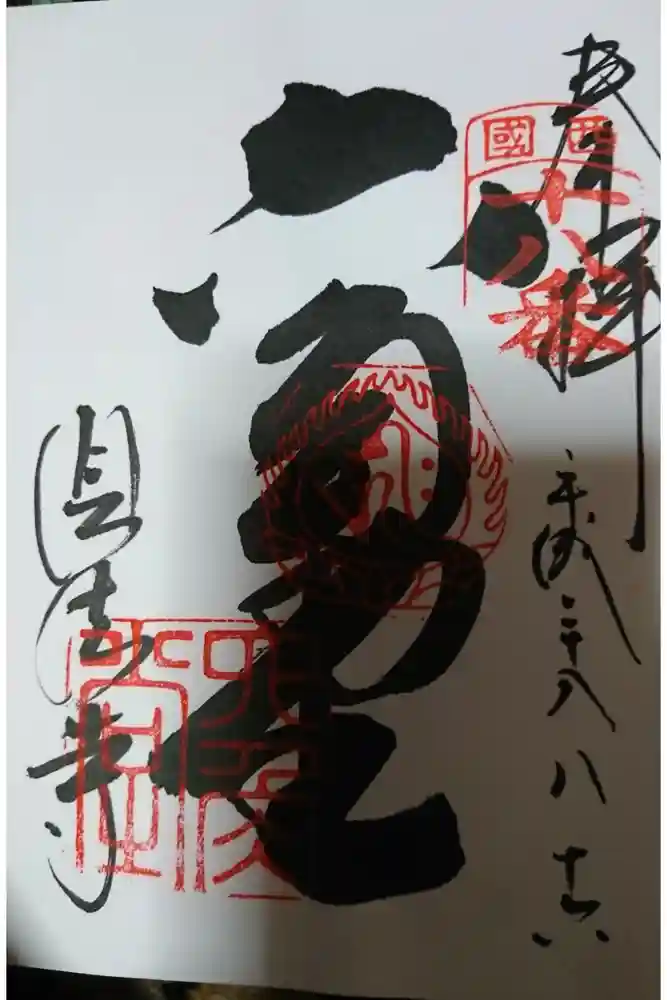 奉拝
西國
十八番
平成二十八 八 十六
六角堂
頂法寺